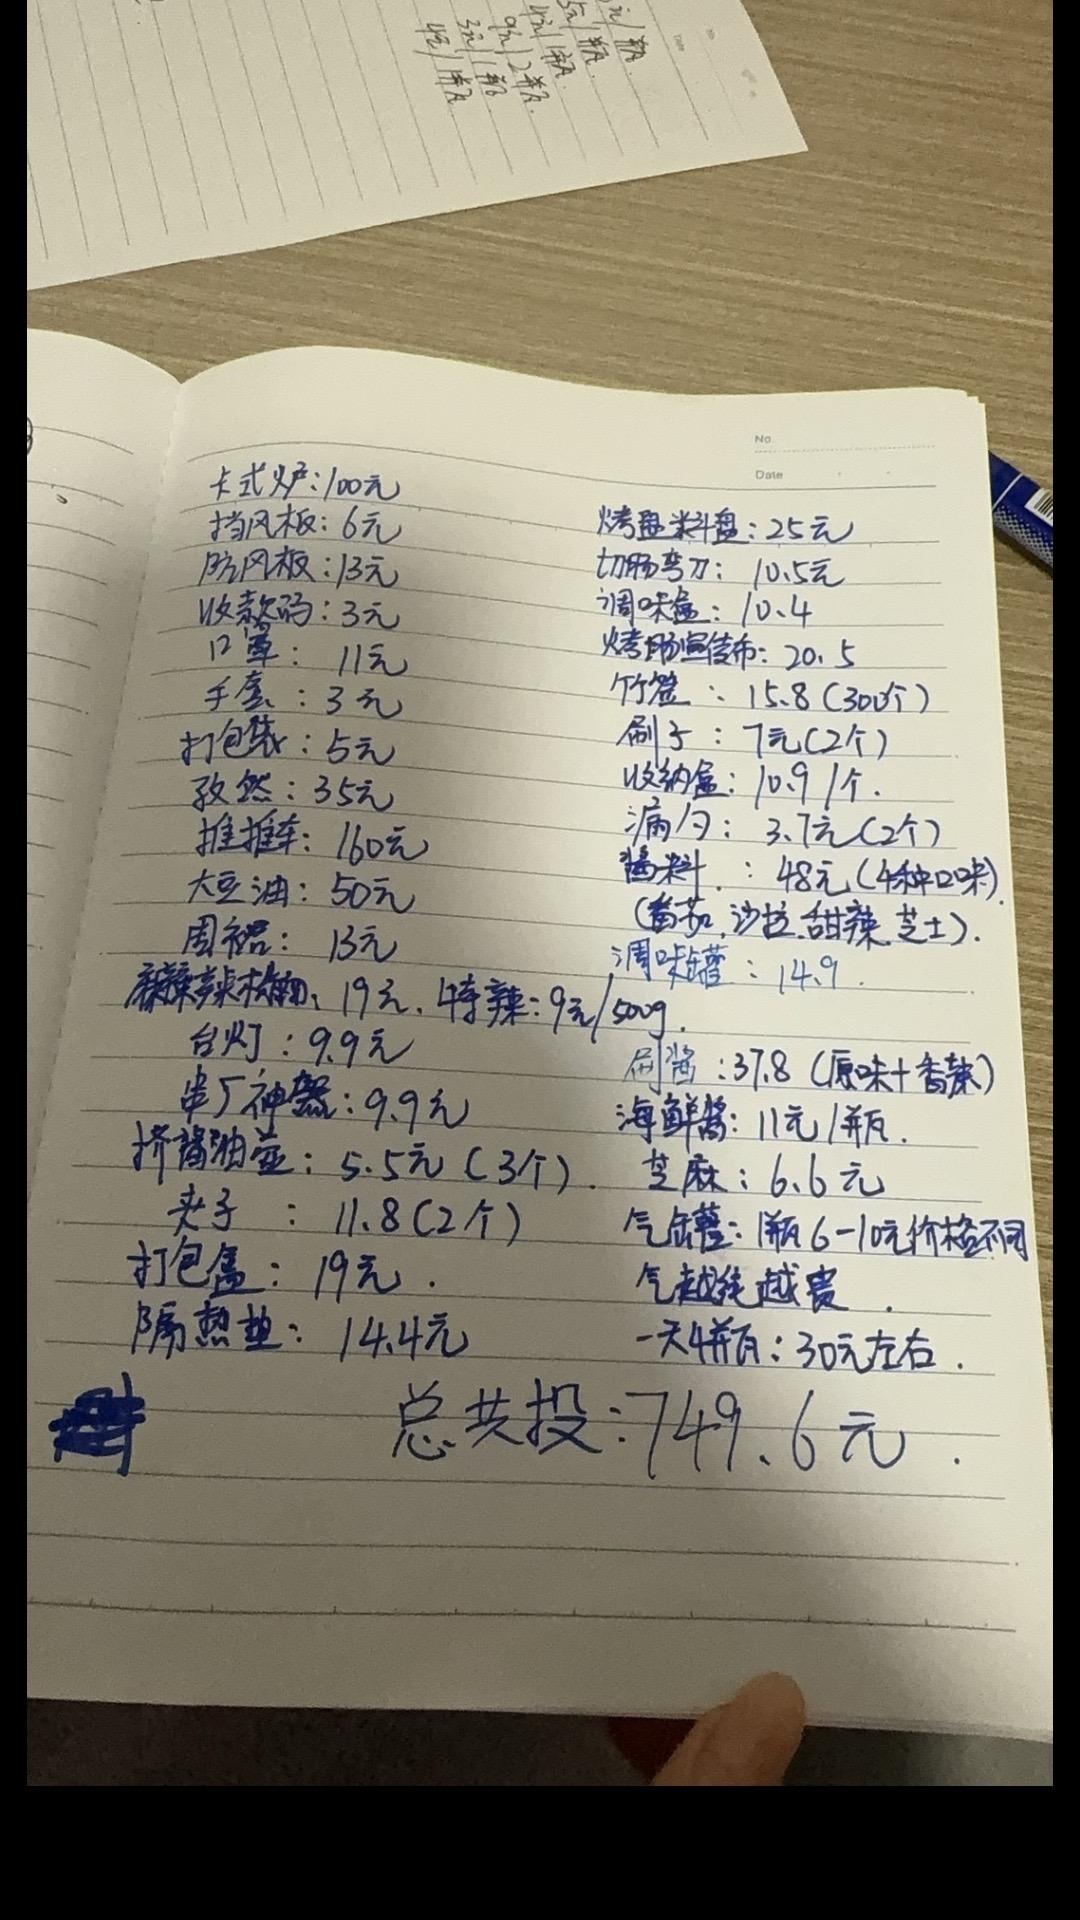 No.
Date
卡式炉:100元
挡风板:6元
防风板:13元
收款码:3元
口罩:11元
手套:3元
打包袋:5元
孜然:35元
推推车:160元
大豆油:50元
围裙:13元
麻辣辣椒面:19元、特辣:9元/500g.
台灯:9.9元
串厂神器:9.9元
挤酱油壶:5.5元(3个).
夹子:11.8(2个)
打包盒:19元.
隔热垫:14.4元
烤盘料盘:25元
切肠弯刀:10.5元
调味盒:10.4
烤肠宣传布:20.5
竹签:15.8(300个)
刷子:7元(2个)
收纳盒:10.9/个.
漏勺:3.7元(2个)
酱料:48元(4种口味).
(番茄.沙拉.甜辣.芝士).
调味罐:14.9.
刷酱:37.8(原味+香辣)
海鲜酱:11元/瓶.
芝麻:6.6元
气罐:1瓶6-10元价格不同
气越纯越贵.
一天4瓶:30元左右.
总共投:749.6元.